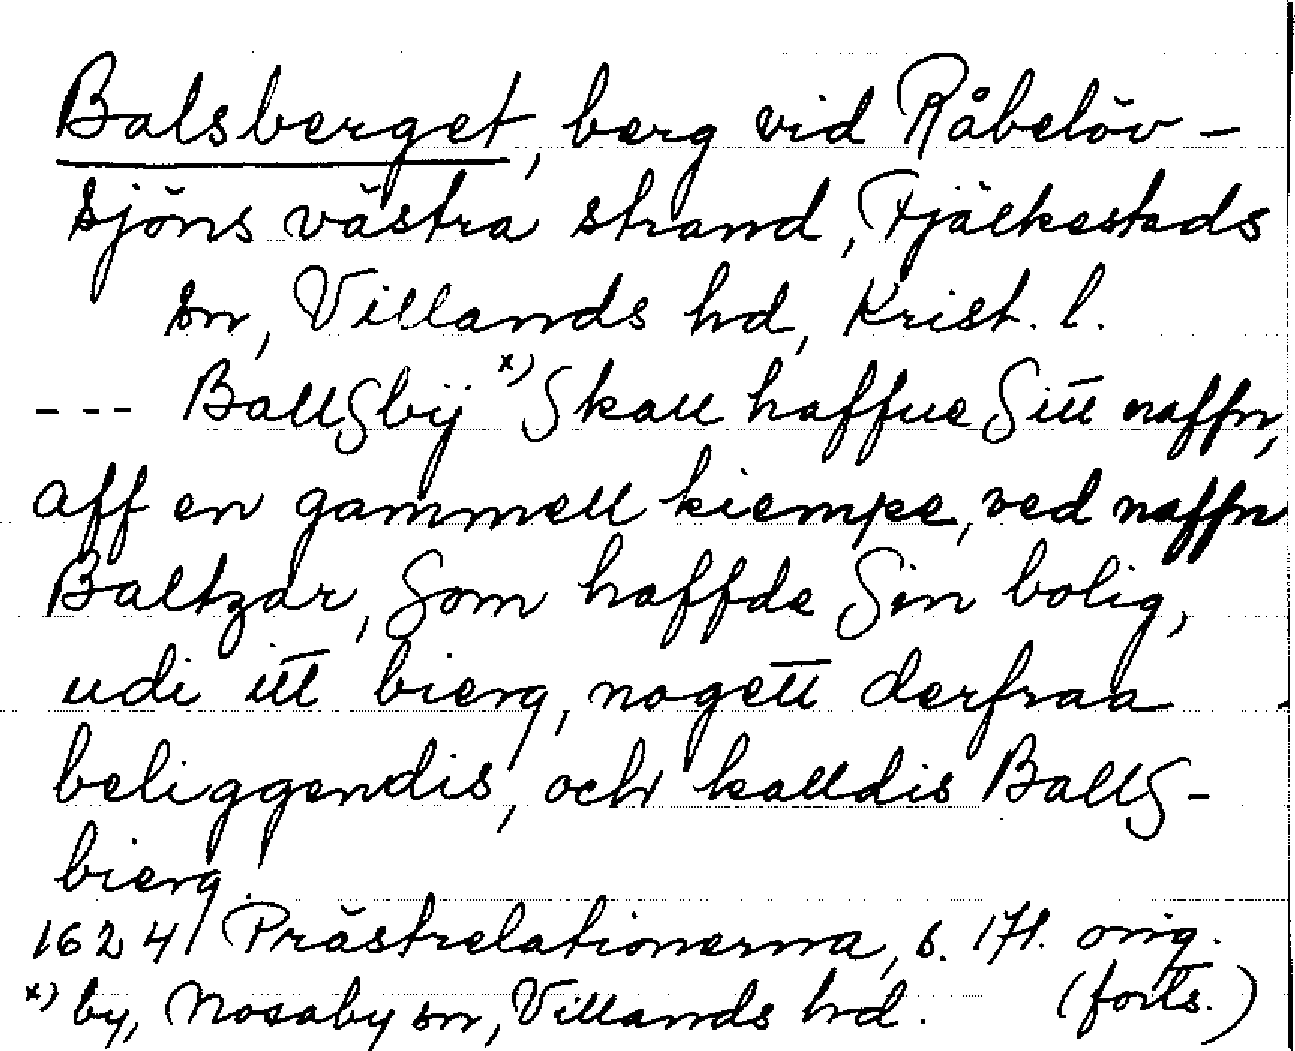 Balsberget, berg vid Råbelöv-
sjöns västra strand, Fjälkestads
sn, Villands hd, Krist. l.
--- BallSbÿ x) Skall haffue Sitt naffn,
aff en gammell kiempe, ved naffn
Baltzar, Som haffde Sin bolig,
udi itt bierg, nogett derfraa
beliggendis, och kalldis BallS-
bierg.
1624 Prästrelationerna, s. 171. orig.
x) by, Nosaby sn, Villands hd. (forts.)